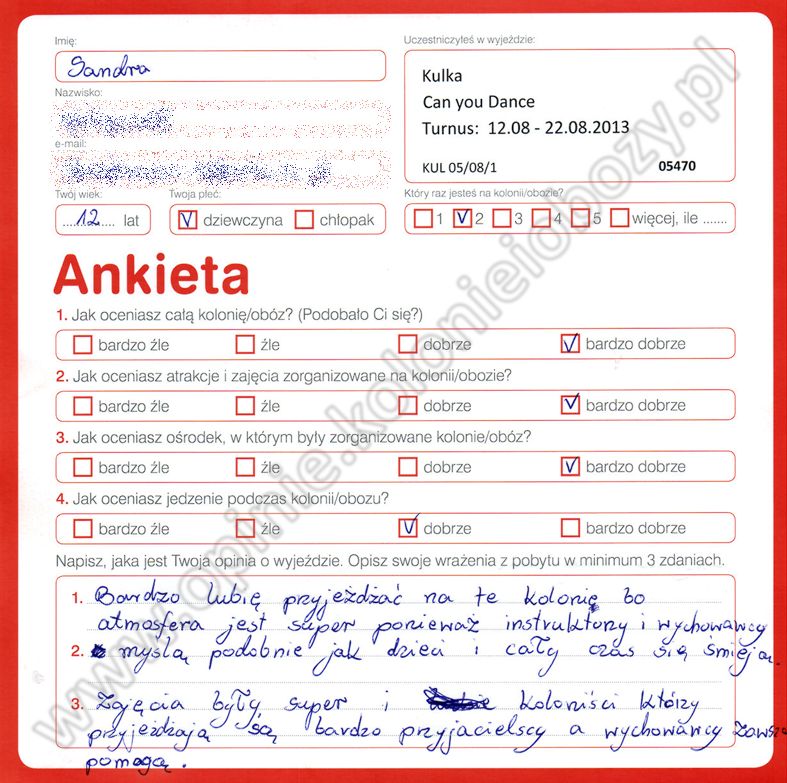 Imię:
Sandra
Nazwisko:
e-mail:
Twój wiek:
12 lat
Twoja płeć:
dziewczyna chłopak
Uczestniczyłeś w wyjeździe:
Kulka
Can you Dance
Turnus: 12.08 - 22.08.2013
KUL 05/08/1 05470
Który raz jesteś na kolonii/obozie?
1 2 3 4 5 więcej, ile .......
Ankieta
1. Jak oceniasz całą kolonię/obóz? (Podobało Ci się?)
bardzo źle źle dobrze bardzo dobrze
2. Jak oceniasz atrakcje i zajęcia zorganizowane na kolonii/obozie?
bardzo źle źle dobrze bardzo dobrze
3. Jak oceniasz ośrodek, w którym były zorganizowane kolonie/obóz?
bardzo źle źle dobrze bardzo dobrze
4. Jak oceniasz jedzenie podczas kolonii/obozu?
bardzo źle źle dobrze bardzo dobrze
Napisz, jaka jest Twoja opinia o wyjeździe. Opisz swoje wrażenia z pobytu w minimum 3 zdaniach.
1. Bardzo lubię przyjeżdżać na te kolonię bo
atmosfera jest super ponieważ instruktorzy i wychowawcy
2. myślą podobnie jak dzieci i cały czas się śmieją.
3. Zajęcia były super i koloniści którzy
przyjeżdżają są bardzo przyjacielscy a wychowawcy zawsze
pomogą.
www.opinie.kolonieiobozy.pl